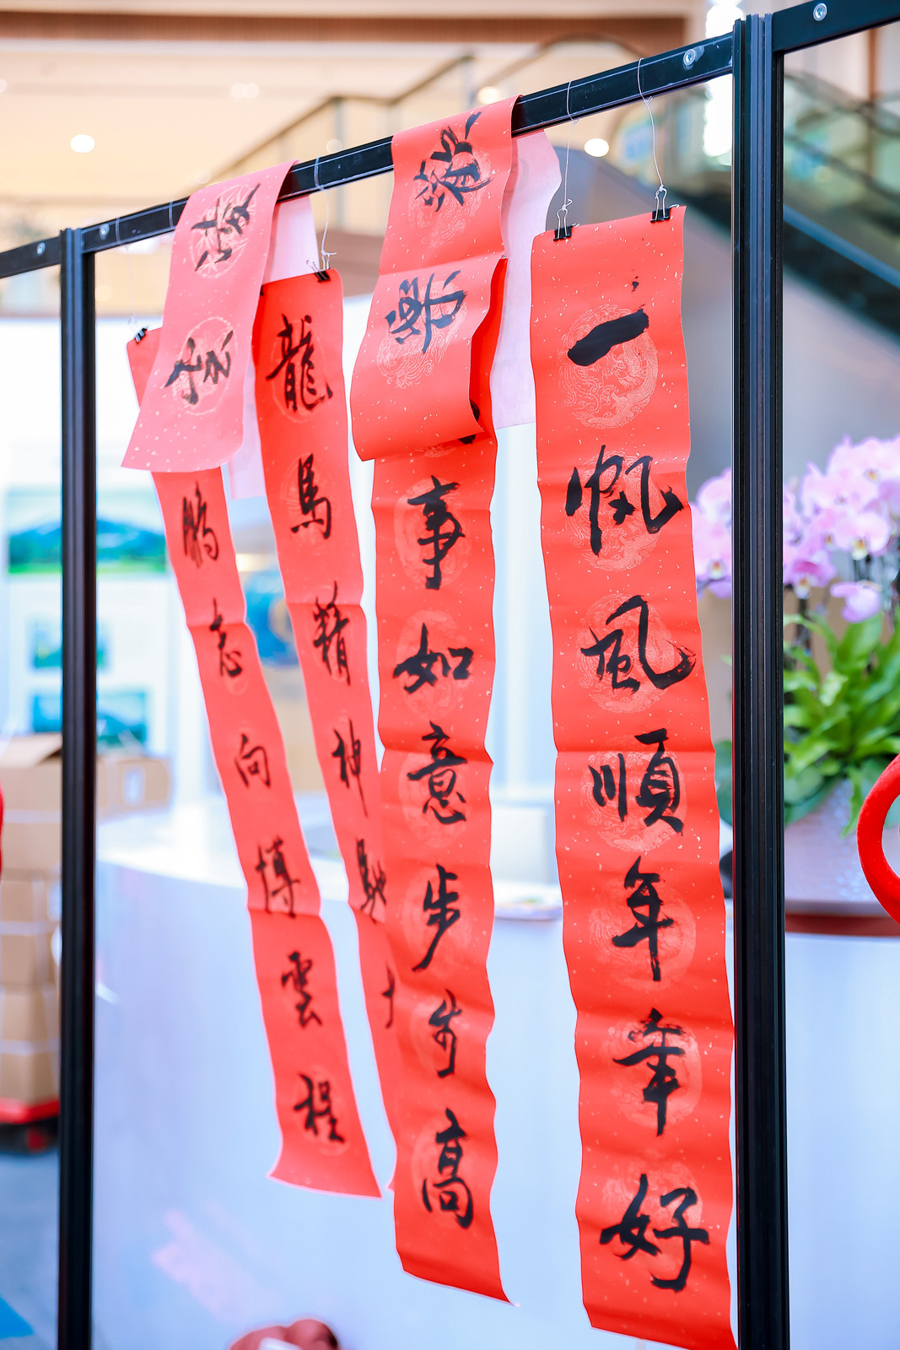 一帆風順年年好
事如意步步高
龍馬精神馳
鵬志向博雲程